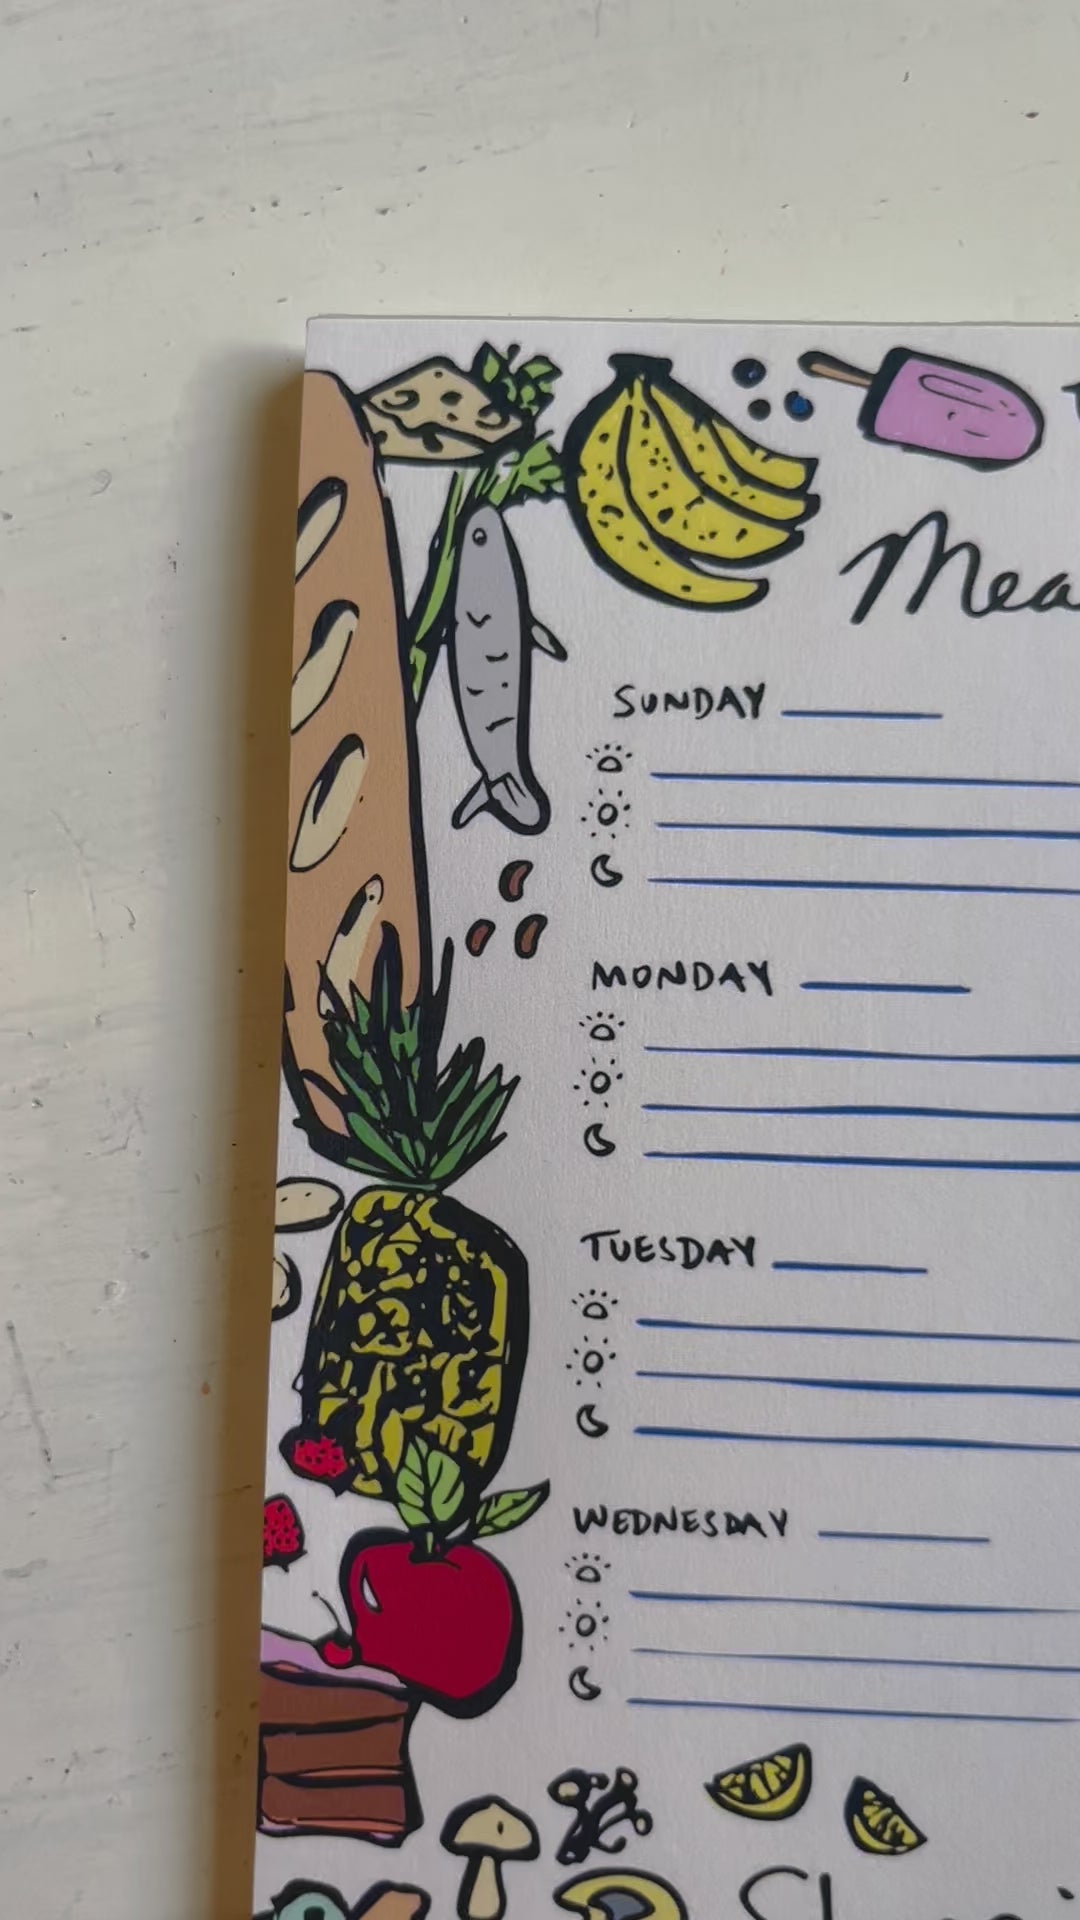 Mea
SUNDAY
MONDAY
TUESDAY
WEDNESDAY